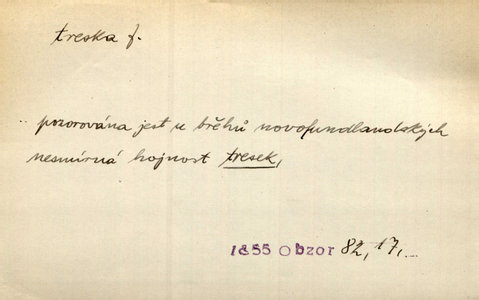 treska f.
.. pozorována jest u břehů novofundlandských
nesmírná hojnost tresek,
1855 Obzor 82, 17, ...